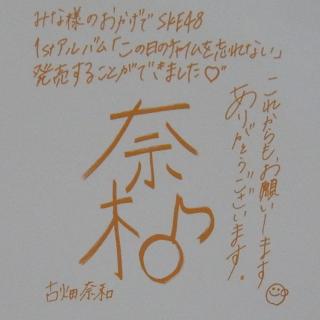 みな様のおかげでSKE48
1stアルバム「この日のチャイムを忘れない」
発売することができました♡"
これからも、お願いします
ありがとうございます。
奈
和
古畑奈和